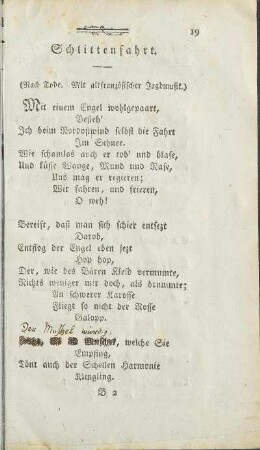 19
Schlittenfahrt.
(Nach Tode. Mit altfranzösischer Jagdmusik.)
Mit einem Engel wohlgepaart,
Besteh'
Ich beim Nordostwind selbst die Fahrt
Im Schnee.
Wie schamlos auch er tob' und blase,
Und küsse Wange, Mund und Nase,
Uns mag er regieren;
Wir fahren, und frieren,
O weh!
Bereift, daß man sich schier entsezt
Darob,
Entflog der Engel eben jezt
Hop hop,
Der, wie des Bären Kleid vermummte,
Nichts weniger mir doch, als brummte;
An schwerer Karosse
Fliegt so nicht der Rosse
Galopp.
Der Muschel würdig,
welche Sie
Empfing,
Tönt auch der Schellen Harmonie
Klingling.
B 2